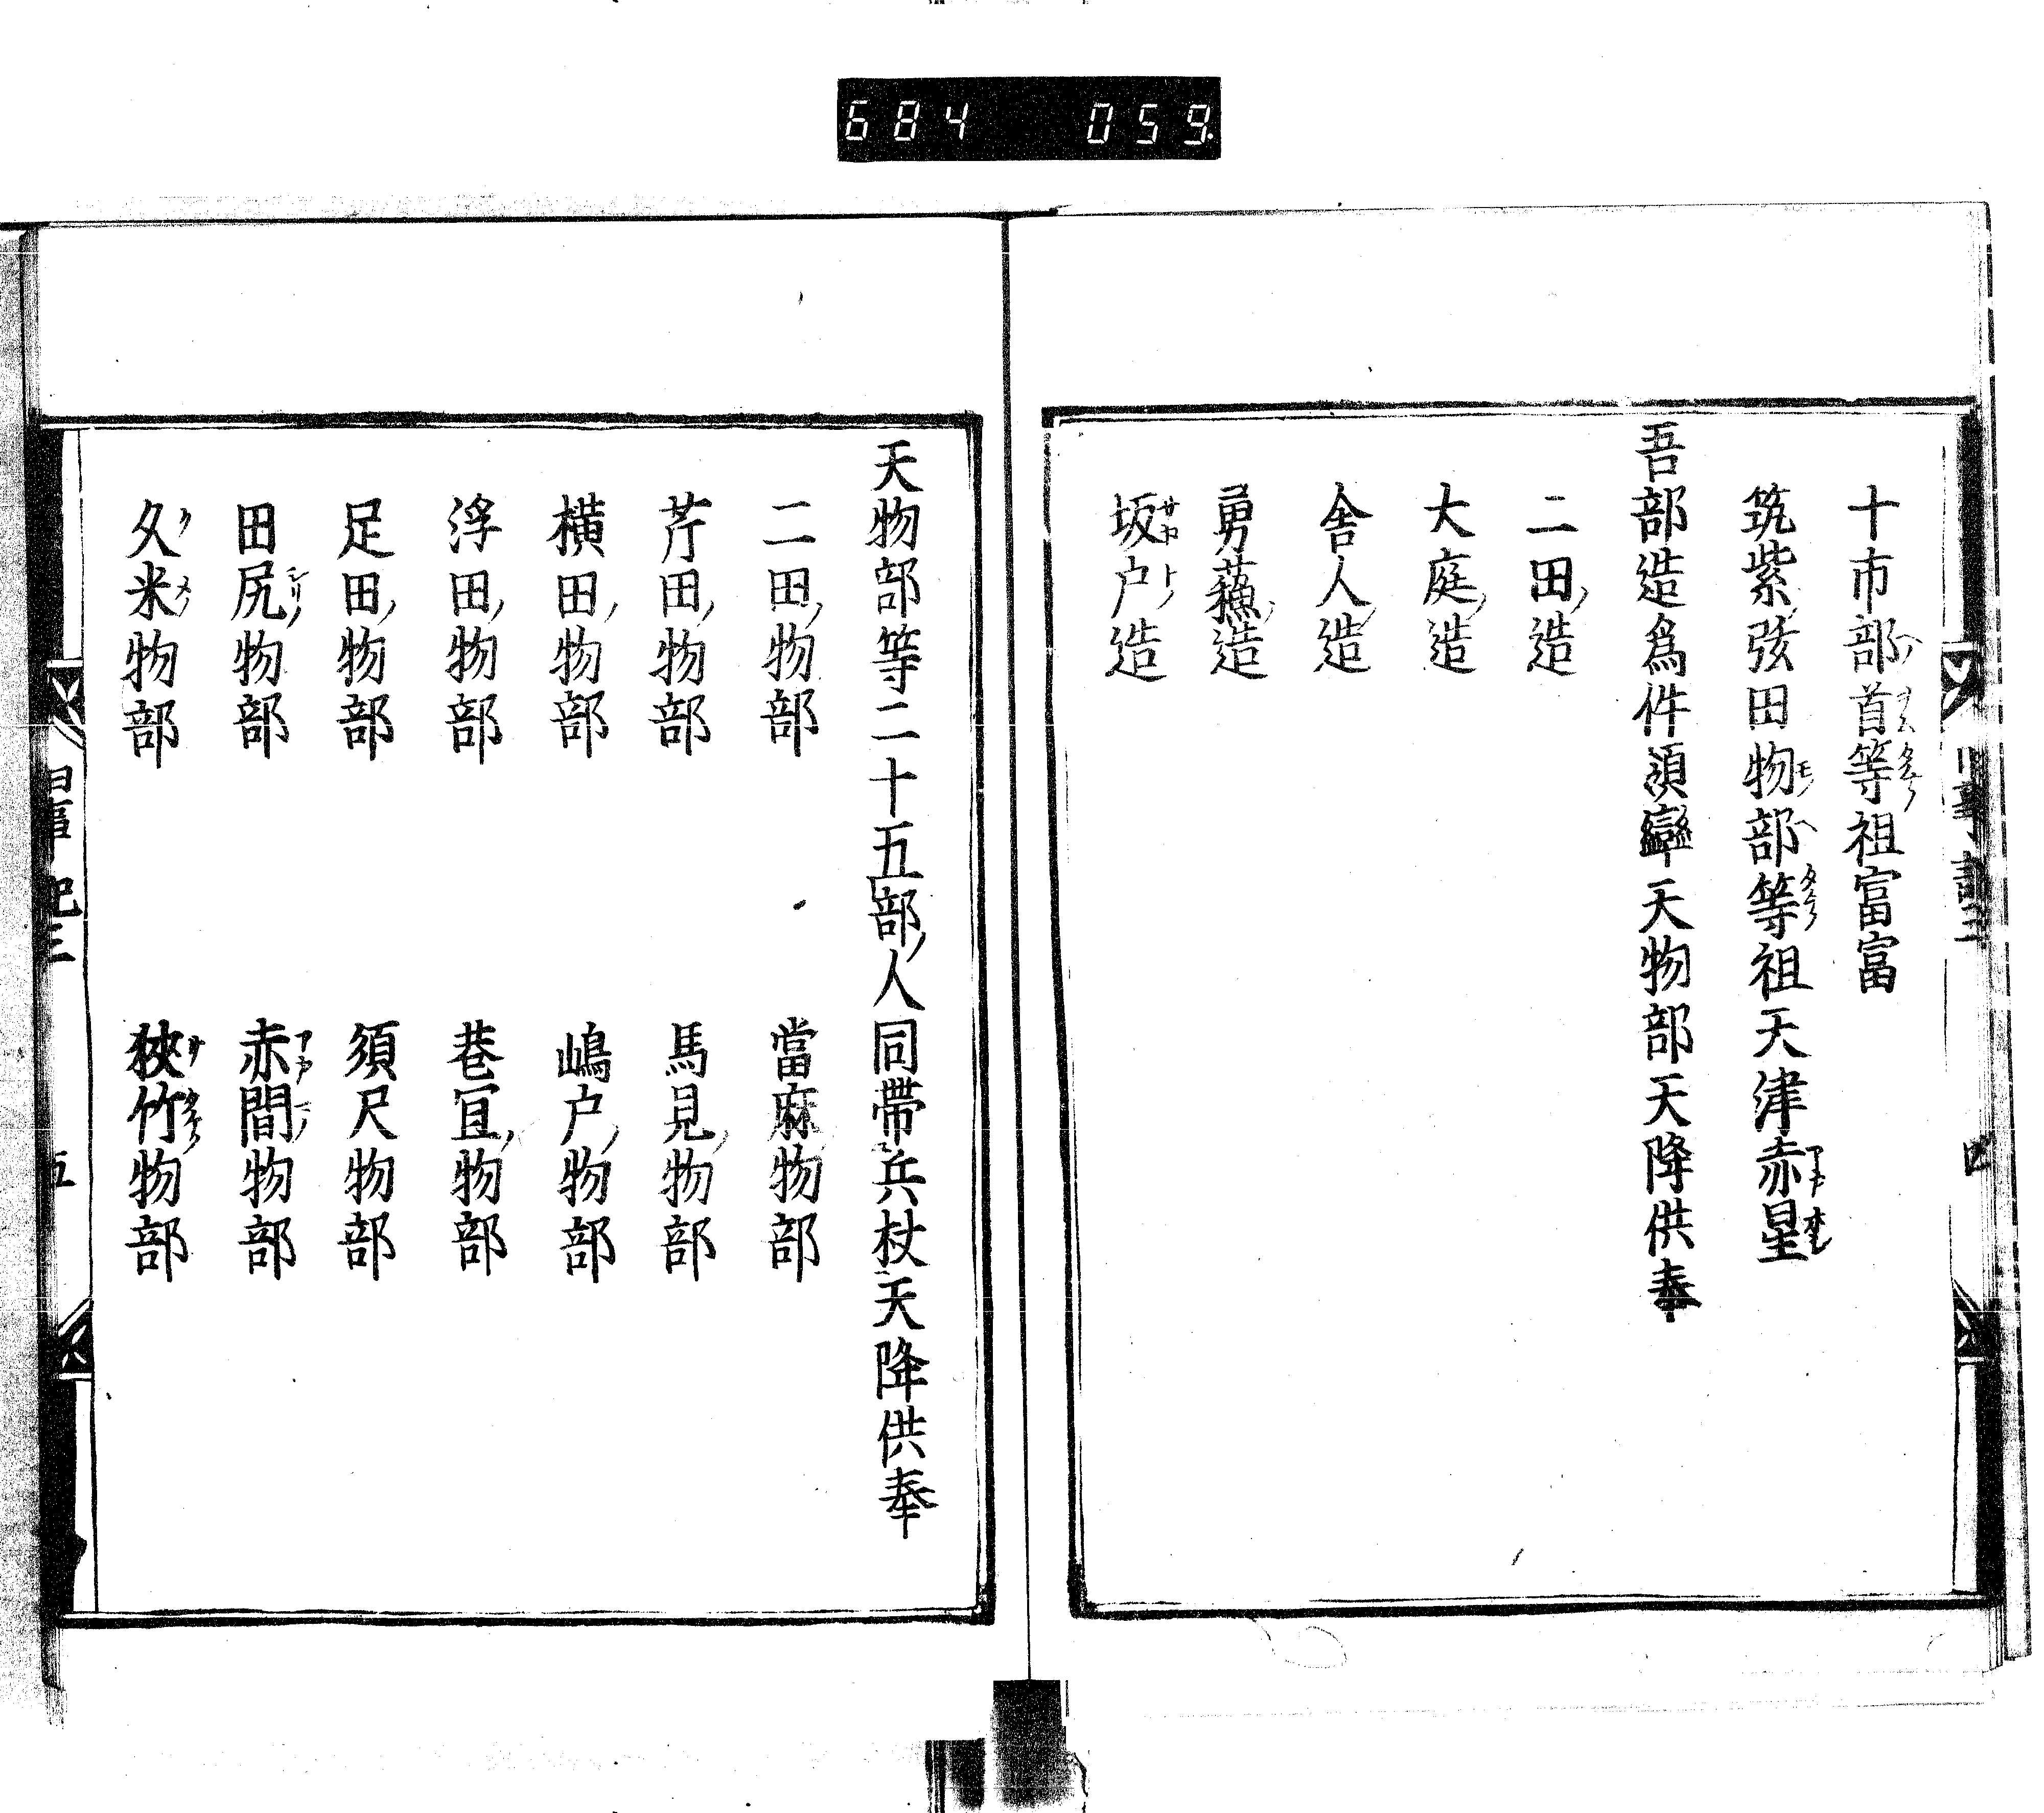 684 059
十市部首等祖富富
筑紫弦田物部等祖天津赤星
吾部造爲件領率天物部天降供奉
二田造
大庭造
舎人造
勇蘓造
坂戸造
四
天物部等二十五部人同帶兵杖天降供奉
二田物部 當麻物部
芹田物部 馬見物部
横田物部 嶋戸物部
浮田物部 巷冝物部
足田物部 須尺物部
田尻物部 赤間物部
久米物部 狹竹物部
舊事紀三 五